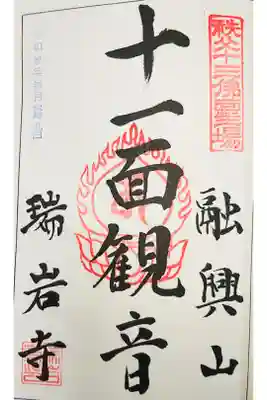 秩父十三佛霊場
融興山
十一面観音
瑞岩寺